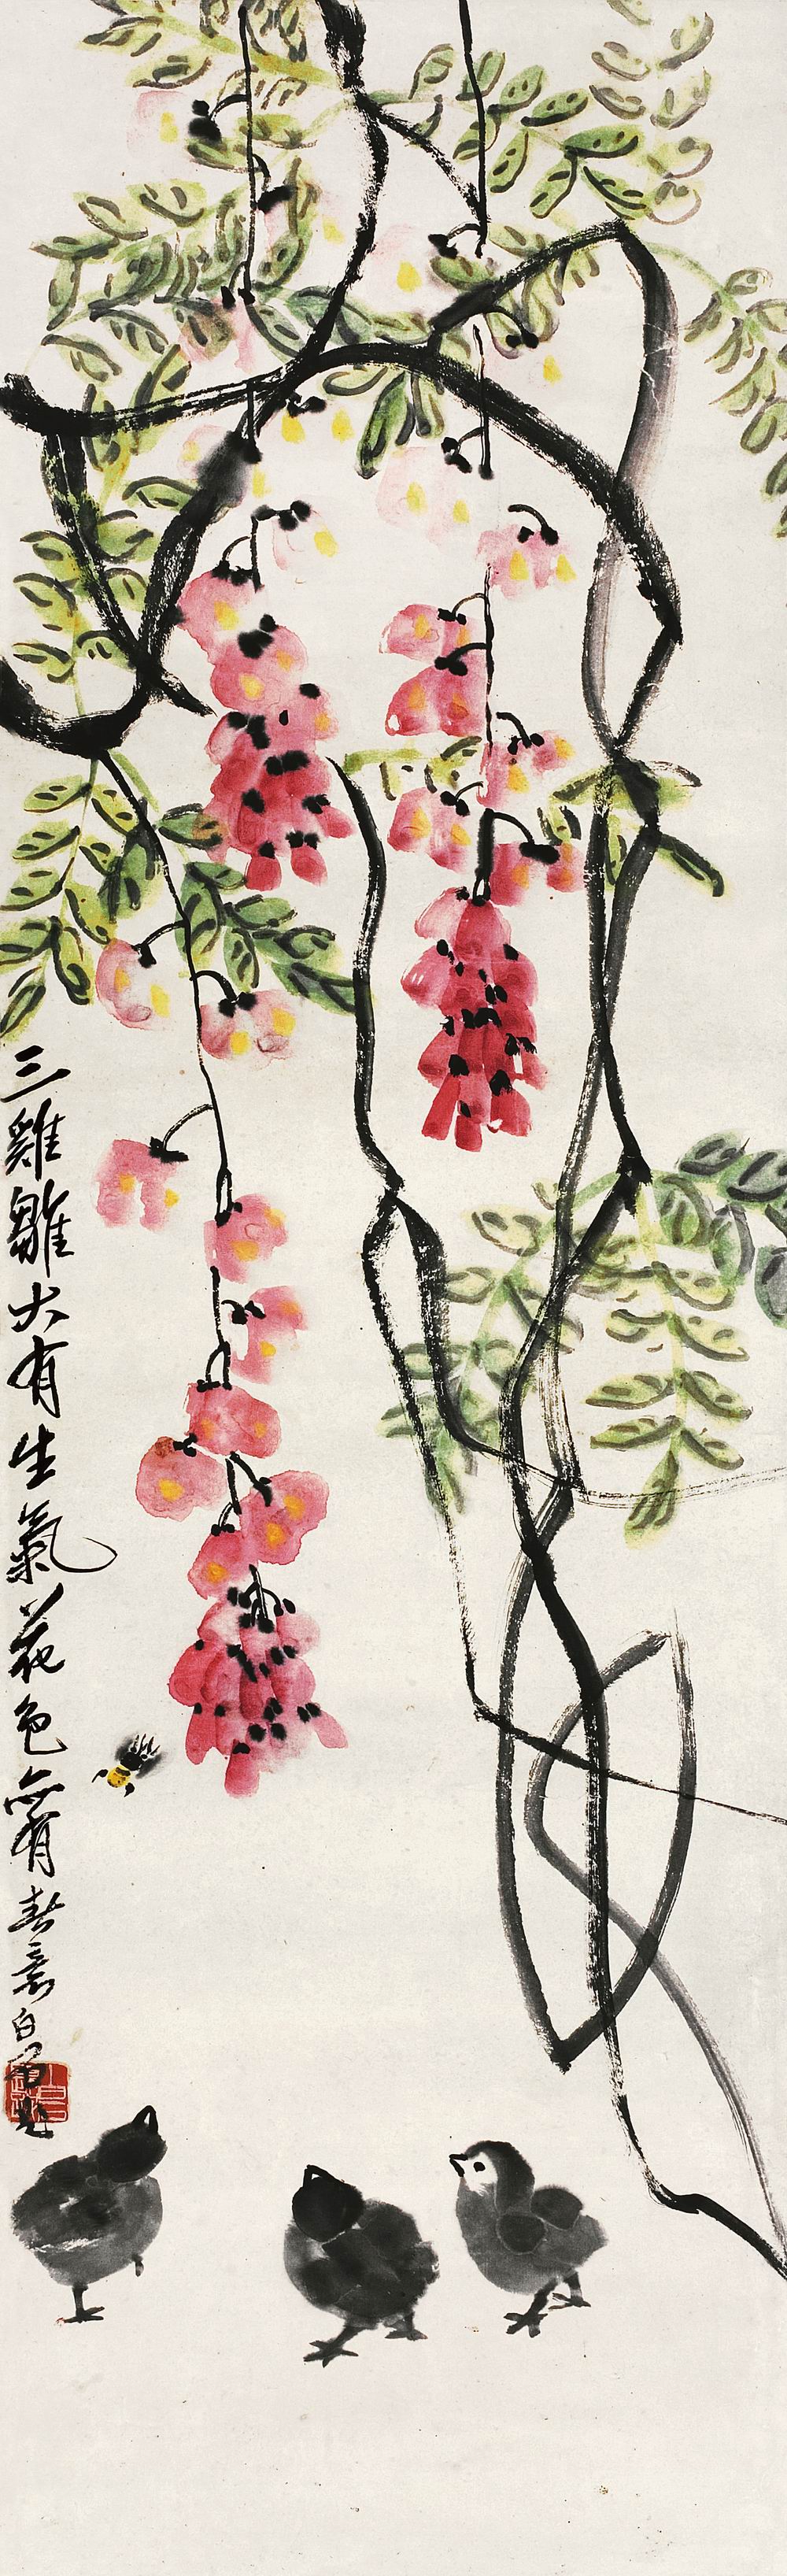 三雞雛大有生氣花色亦有春意白石